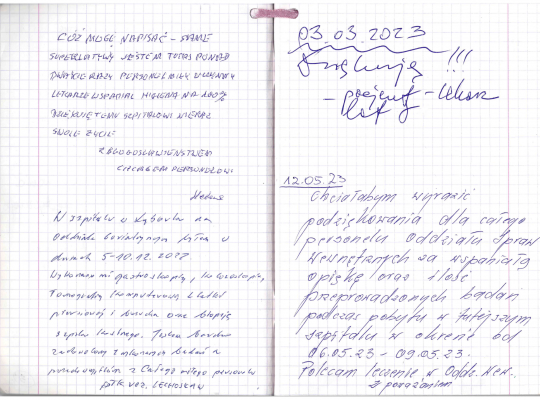 CÓŻ MOGĘ NAPISAĆ - SAME
SUPERLATYWY JESTEM TUTAJ PONAD
DWAJŚCIE RAZY PERSONEL MIŁY
LEKARZE WSPANIALI HIGIENA NA 100%
SZPITALOWI
SWOJE ŻYCIE
Z BŁOGOSŁAWIEŃSTWEM
CAŁEMU PERSONELOWI
W szpitalu w
oddziale byłem w
dniach 5-10.12.2022
Wykonano mi gastroskopię, kolonoskopię,
Tomografię komputerową klatki
piersiowej i brzucha oraz biopsję
szpiku kostnego. Jestem bardzo
zadowolony z badań
z całego miłego personelu
płk rez. LECHOSŁAW
03.03.2023
Dziękuję !!!
- pacjent - lekarz
lat
12.05.23
Chciałabym wyrazić
podziękowania dla całego
personelu Oddziału Spraw
Wewnętrznych za wspaniałą
opiekę oraz ilość
przeprowadzonych badań
podczas pobytu w tutejszym
szpitalu w okresie od
06.05.23 - 09.05.23.
Polecam leczenie w Oddz. Wew.
Z poważaniem